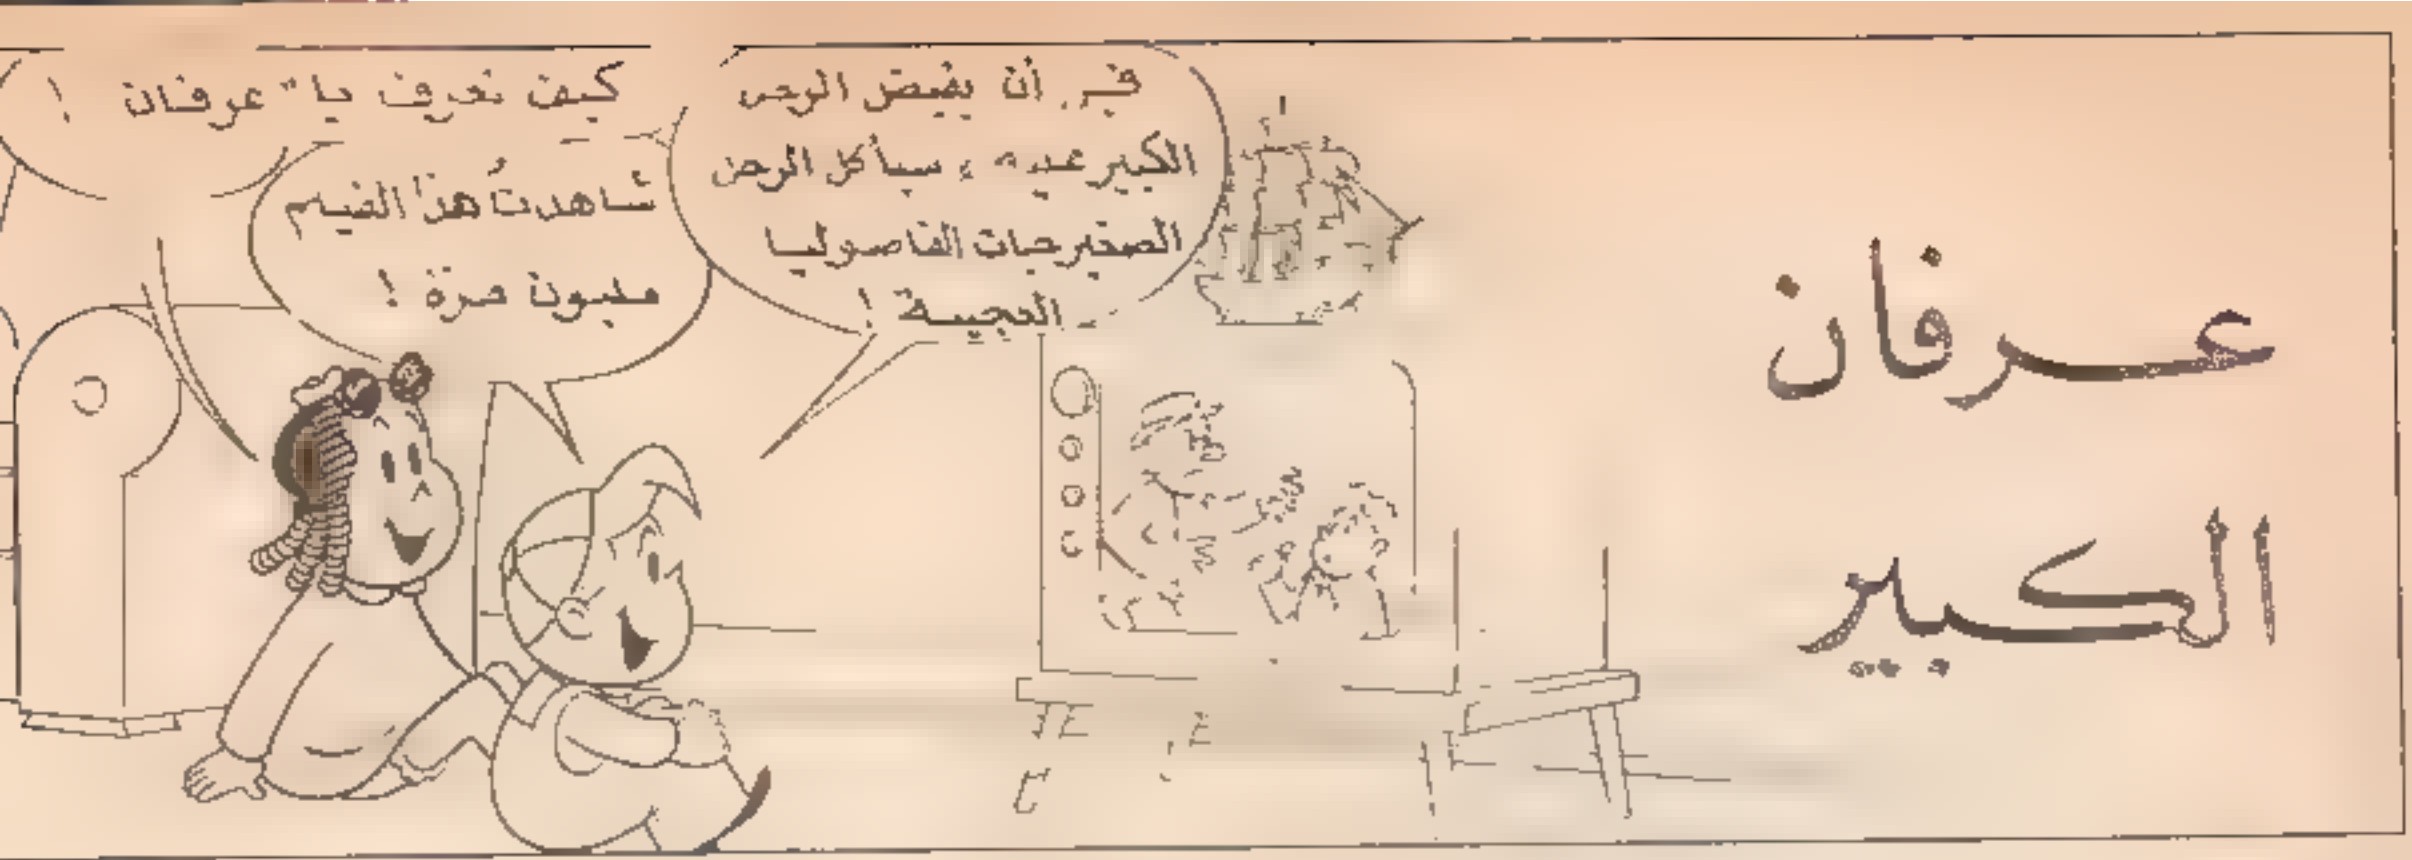 عرفان
الكبير
قبل أن يقبض الرجل
الكبير عليه ، سيأكل الرجل
الصغير حبات الفاصوليا
العجيبة !
كيف تعرف يا "عرفان
شاهدتُ هذا الفيلم
مليون مرة !